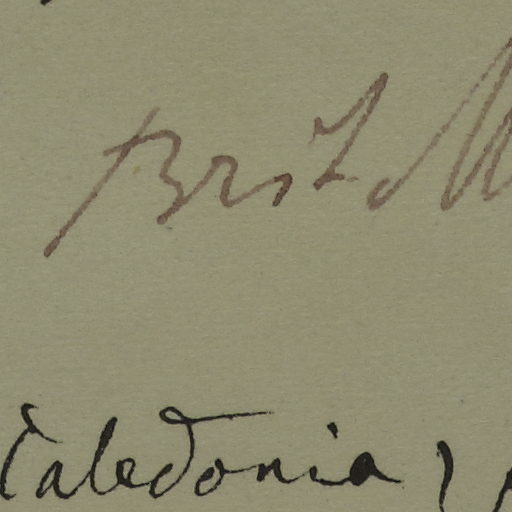 Brit. M
Caledonia,